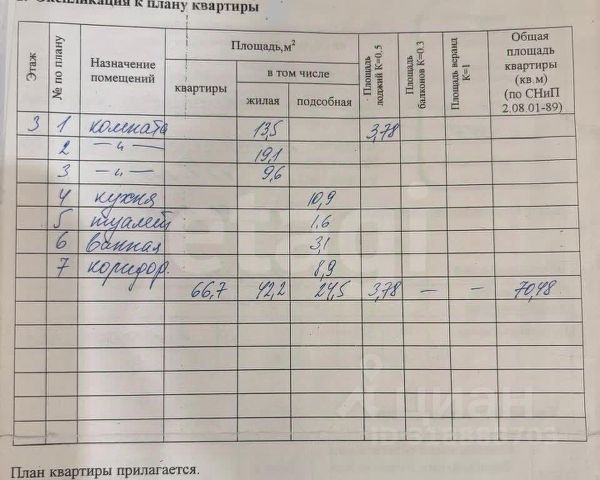 Экспликация к плану квартиры
Этаж
№ по плану
Назначение помещений
Площадь,м²
квартиры
в том числе
жилая
подсобная
Площадь лоджий К=0.5
Площадь балконов К=0.3
Площадь веранд К=1
Общая площадь квартиры (кв.м) (по СНиП 2.08.01-89)
3 1 комната 13,5 3,78
2 —"— 19,1
3 —"— 9,6
4 кухня 10,9
5 туалет 1,6
6 ванная 3,1
7 коридор. 8,9
66,7 42,2 24,5 3,78 — — 70,48
План квартиры прилагается.
etagi
циан